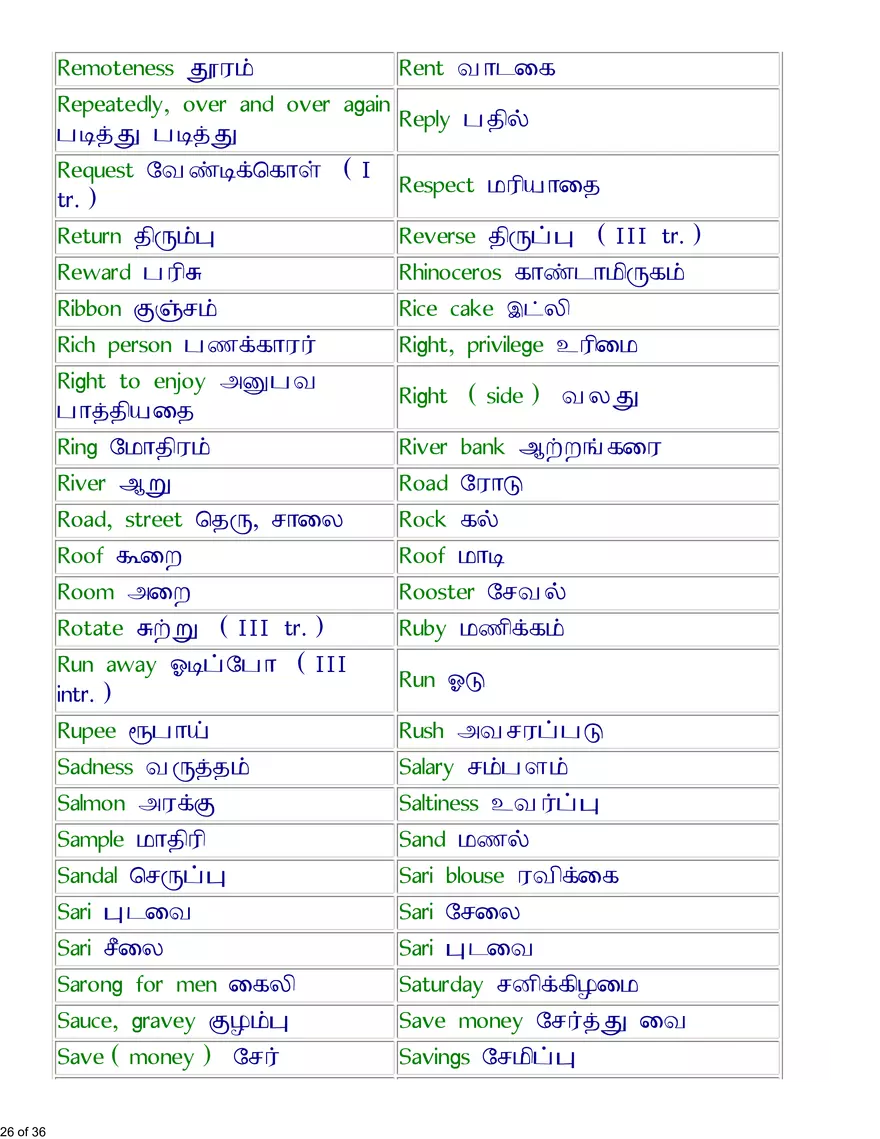 Remoteness தூரம்
Rent வாடகை
Repeatedly, over and over again
படித்து படித்து
Reply பதில்
Request வேண்டிக்கொள் ( I
tr. )
Respect மரியாதை
Return திரும்பு
Reverse திருப்பு ( III tr. )
Reward பரிசு
Rhinoceros காண்டாமிருகம்
Ribbon குஞ்சம்
Rice cake இட்லி
Rich person பணக்காரர்
Right, privilege உரிமை
Right to enjoy அனுபவ
பாத்தியதை
Right ( side ) வலது
Ring மோதிரம்
River bank ஆற்றங்கரை
River ஆறு
Road ரோடு
Road, street தெரு, சாலை
Rock கல்
Roof கூறை
Roof மாடி
Room அறை
Rooster சேவல்
Rotate சுற்று ( III tr. )
Ruby மணிக்கம்
Run away ஓடிப்போ ( III
intr. )
Run ஓடு
Rupee ரூபாய்
Rush அவசரப்படு
Sadness வருத்தம்
Salary சம்பளம்
Salmon அரக்கு
Saltiness உவர்ப்பு
Sample மாதிரி
Sand மணல்
Sandal செருப்பு
Sari blouse ரவிக்கை
Sari புடவை
Sari சேலை
Sari சீலை
Sari புடவை
Sarong for men கைலி
Saturday சனிக்கிழமை
Sauce, gravey குழம்பு
Save money சேர்த்து வை
Save ( money ) சேர்
Savings சேமிப்பு
26 of 36